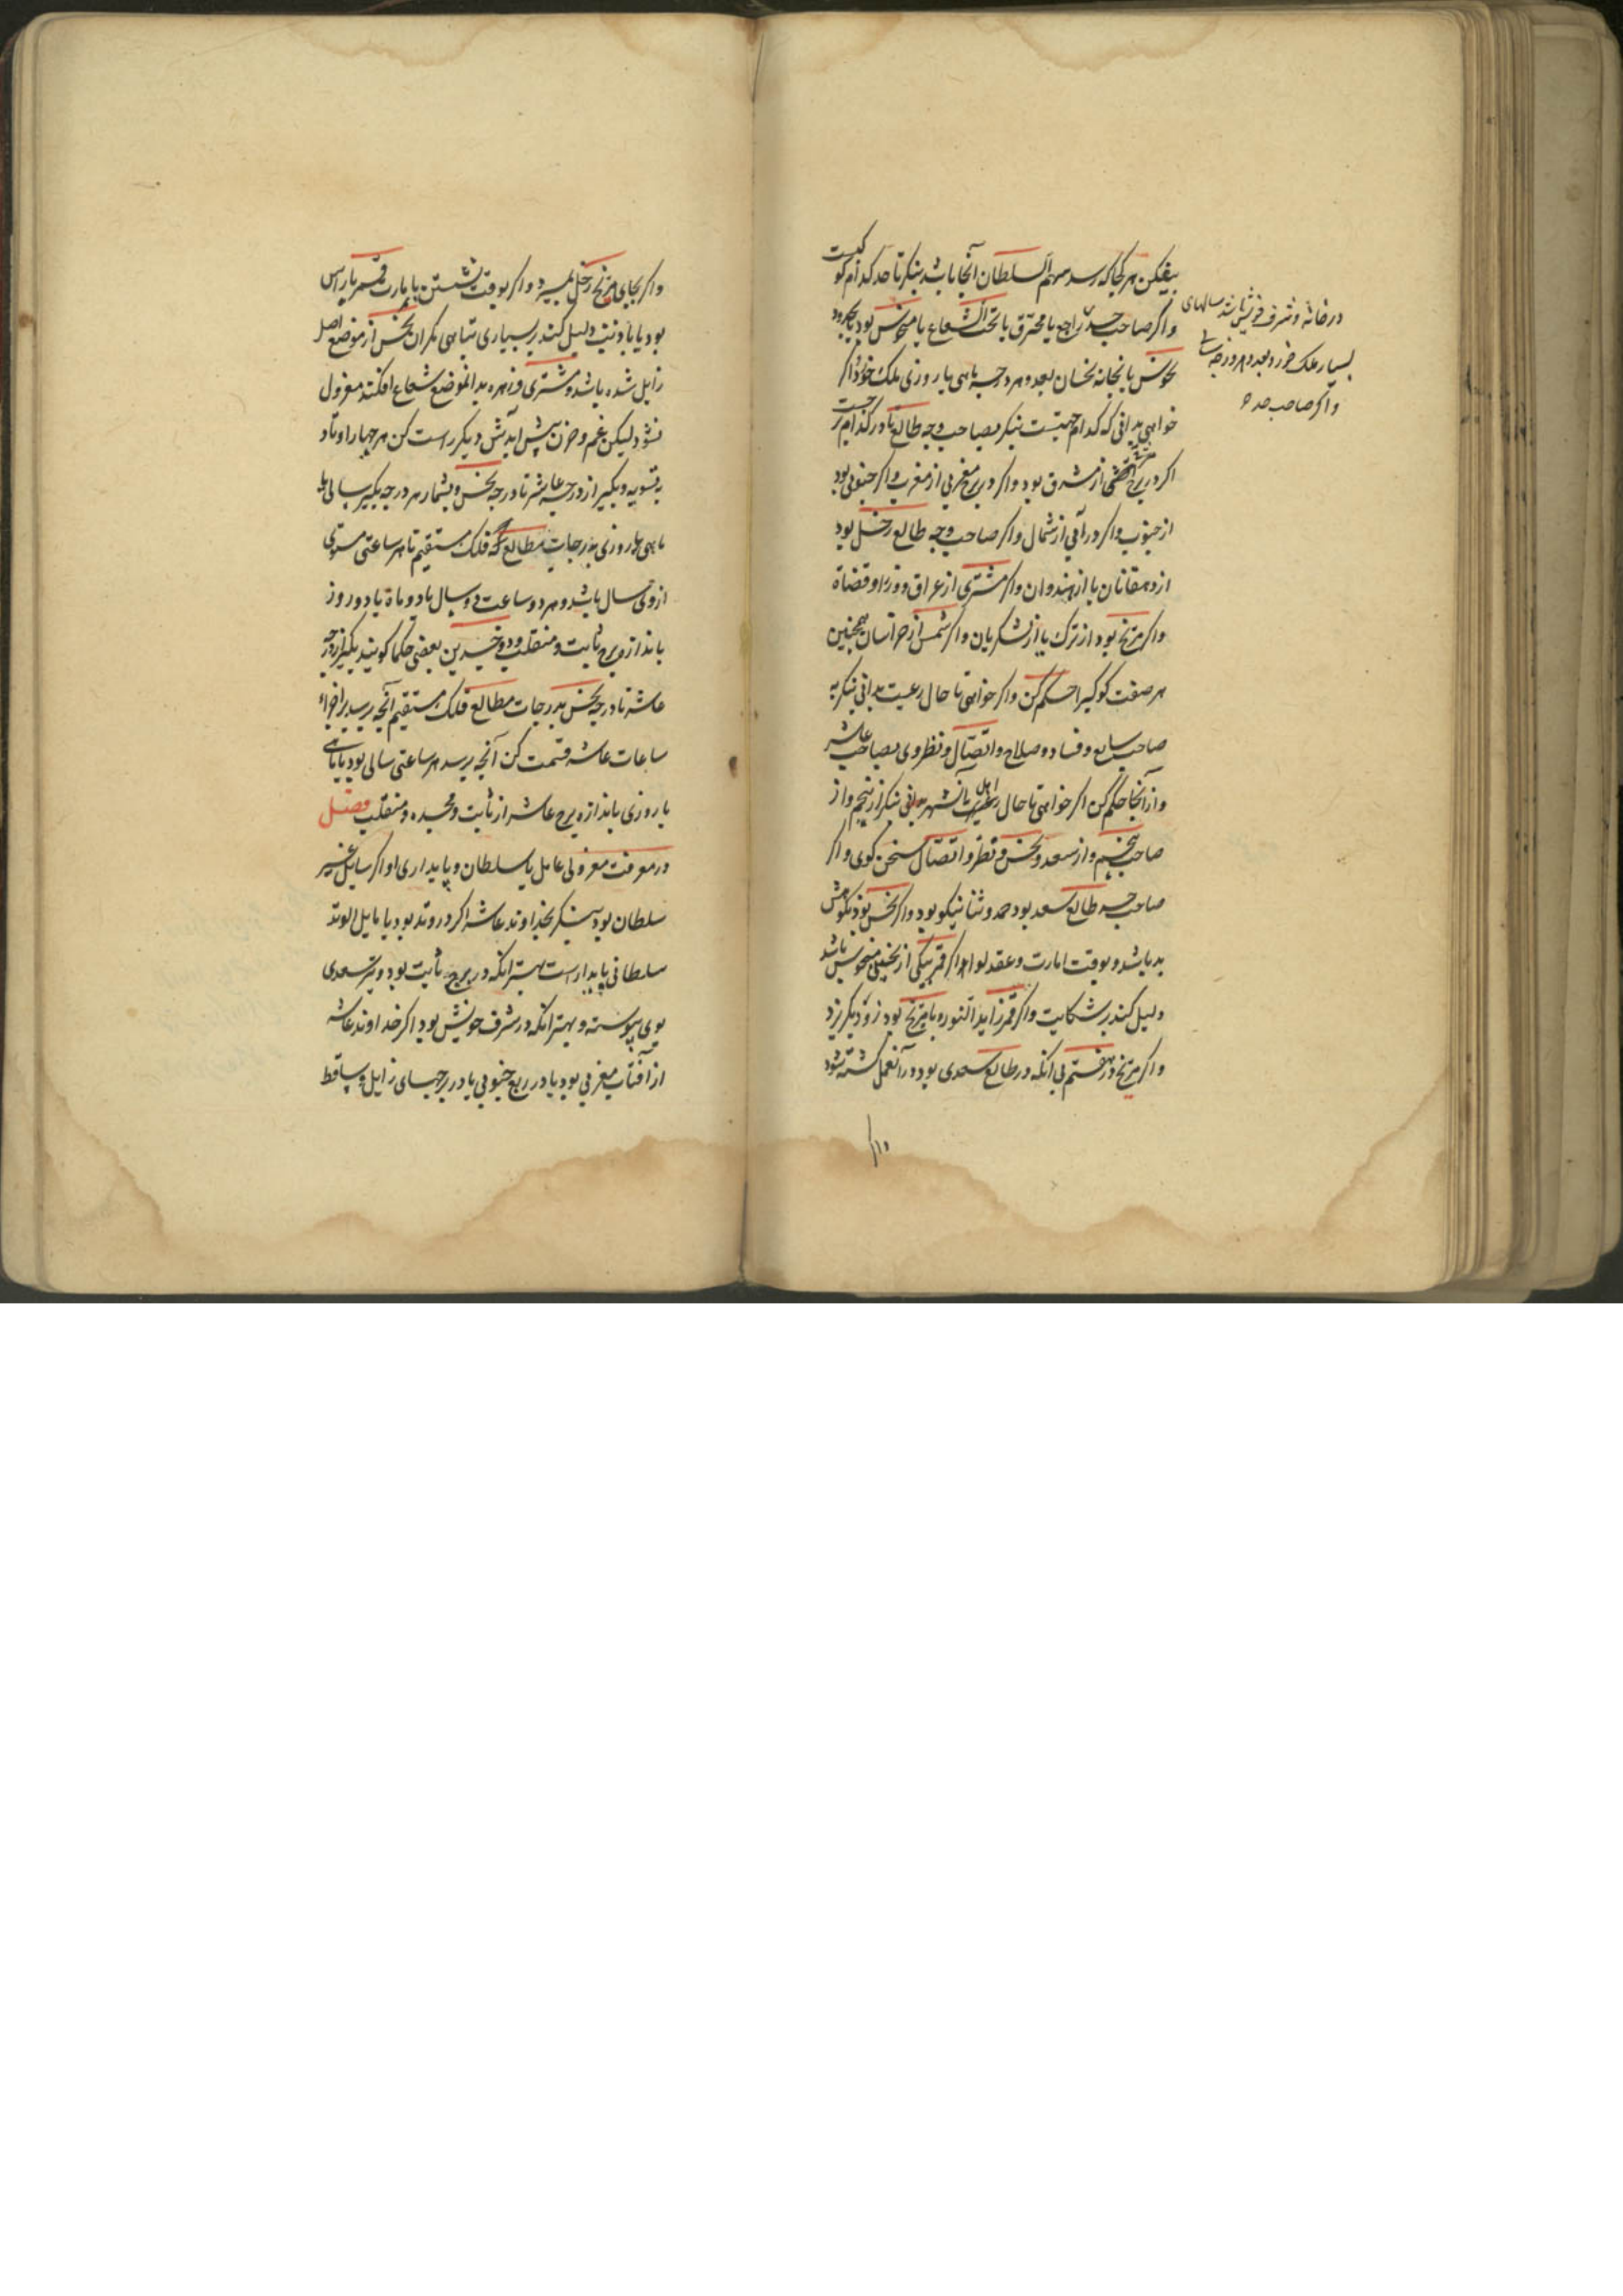 بیفکن هر کجا که رسد سهم السلطان آنجا باشد بنکر تا حد کدام کوکبست
و اکر صاحب حد راجع یا محترق یا تحت الشعاع یا منحوس بود
نحوس یا بخانه نحسان بعدد هر درجه ماهی یا روزی ملک خورد و اکر
خواهی بدانی که کدام جهتست بنکر بصاحب وجه طالع تا در کدام برجست
اکر در برج مشرقی از مشرق بود و اکر در برج مغربی از مغرب و اکر جنوبی بود
از جنوب و اکر در آبی از شمال و اکر صاحب وجه طالع زحل بود
از دهقانان یا از هندوان و اکر مشتری از عراق و وزرا و قضاة
و اکر مریخ بود از ترک یا از لشکریان و اکر شمس از خراسان همچنین
بر صفت کوکب احکم کن و اکر خواهی تا حال رعیت بدانی بنکر به
صاحب سابع و فساد و صلاح و اتصال و نظر وی بصاحب عاشر
و از آنجا حکم کن اکر خواهی تا حال اهل آن شهر بدانی بنکر از پنجم و از
صاحب پنجم و از سعد و نحس و نظر و اتصال سخن کوی و اکر
صاحب حد طالع سعد بود حمد و ثنا نیکو بود و اکر نحس بود نکوهش
بد باشد و بوقت امارت و عقد لوا اکر قمر بیکی از نحسین منحوس باشد
دلیل کند بر شکایت و اکر قمر زاید النور با مریخ بود زود دیکر زد
و اکر مریخ در هفتم بی آنکه در طالع سعدی بود در آن عمل کشته شود
در خانه و شرف خویش باشد سالهای
بسیار ملک خورد و بعدد هر درجه سالی
و اکر صاحب حد
و اکر بجای مریخ زحل بمیرد و اکر بوقت نشستن یا امارت قمر با راس
بود یا با ذنب دلیل کند بر بسیاری تباهی نکران نحس از موضع اصل
زایل شده باشد و مشتری و زهره بدانموضع شعاع افکند معزول
نشود لیکن غم و حزن پیش آیدش دیکر راست کن هر چهار اوتاد
بتسویه و بکیر از درجه عاشر تا درجه نحس و بشمار هر درجه بکیر سالی یا
ماهی یا روزی بدرجات مطالع فلک مستقیم تا هر ساعتی مستوی
از وی سال باشد و هر دو ساعت دو سال یا دو ماه یا دو روز
باندازه برج ثابت و منقلب و ذوجسدین بعضی حکما کویند بکیر از درجه
عاشر تا درجه نحس بدرجات مطالع فلک مستقیم آنچه برسد بر اجزاء
ساعات عاشر قسمت کن آنچه برسد هر ساعتی سالی بود یا ماهی
یا روزی باندازه برج عاشر از ثابت و مجسده و منقلب فصل
در معرفت معزولی عامل یا سلطان و پایداری او اکر سایل غیر
سلطان بود بنکر بخداوند عاشر اکر در وتد بود یا مایل الوتد
سلطانی پایدارست بهتر آنکه در برج ثابت بود و نیز سعدی
بوی پیوسته و بهتر آنکه در شرف خویش بود اکر خداوند عاشر
از آفتاب مغربی بود یا در ربع جنوبی یا در برجهای زایل و ساقط